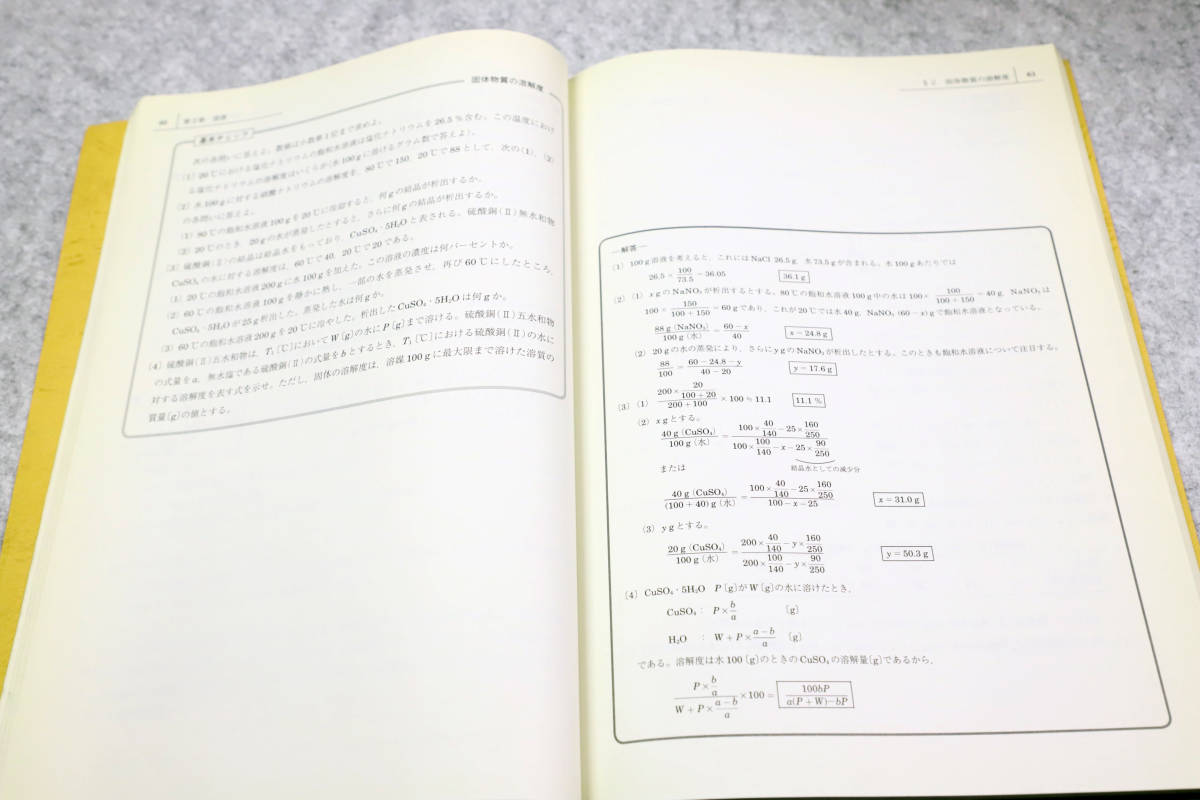 60 第2章 溶液
固体物質の溶解度
基本チェック
次の各問いに答えよ。数値は小数第1位まで求めよ。
〔1〕20℃における塩化ナトリウムの飽和水溶液は塩化ナトリウムを26.5%含む。この温度におけ
る塩化ナトリウムの溶解度はいくらか(水100gに溶けるグラム数で答えよ)。
〔2〕水100gに対する硝酸ナトリウムの溶解度を、80℃で150、20℃で88として、次の(1)、(2)
の各問いに答えよ。
(1) 90℃の飽和水溶液100gを20℃に冷却すると、何gの結晶が析出するか。
(2) 20℃のとき、20gの水が蒸発したとすると、さらに何gの結晶が析出するか。
〔3〕硫酸銅(Ⅱ)の結晶は結晶水をもっており、CuSO₄・5H₂Oと表される。硫酸銅(Ⅱ)無水和物
CuSO₄の水に対する溶解度は、60℃で40、20℃で20である。
(1) 20℃の飽和水溶液200gに水100gを加えた。この溶液の濃度は何パーセントか。
(2) 60℃の飽和水溶液100gを静かに熱し、一部の水を蒸発させ、再び60℃にしたところ、
CuSO₄・5H₂Oが25g析出した。蒸発した水は何gか。
(3) 60℃の飽和水溶液200gを20℃に冷やした。析出したCuSO₄・5H₂Oは何gか。
〔4〕硫酸銅(Ⅱ)五水和物は、T₁〔℃〕においてW〔g〕の水にP〔g〕まで溶ける。硫酸銅(Ⅱ)五水和物
の式量をa、無水塩である硫酸銅(Ⅱ)の式量をbとするとき、T₁〔℃〕における硫酸銅(Ⅱ)の水に
対する溶解度を表す式を示せ。ただし、固体の溶解度は、溶媒100gに最大限まで溶けた溶質の
質量〔g〕の値とする。
§2 固体物質の溶解度 61
解答
〔1〕100g溶液を考えると、これにはNaCl 26.5g、水73.5gが含まれる。水100gあたりでは
26.5 × 100/73.5 = 36.05 36.1g
〔2〕(1) xgのNaNO₃が析出するとする。80℃の飽和水溶液100g中の水は100× 100/(100+150) = 40g、NaNO₃は
100 × 150/(100+150) = 60gであり、これが20℃では水40g、NaNO₃ (60−x)gで飽和水溶液となっている。
88g(NaNO₃)/100g(水) = (60−x)/40 x = 24.8g
(2) 20gの水の蒸発により、さらにygのNaNO₃が析出したとする。このときも飽和水溶液について注目する。
88/100 = (60−24.8−y)/(40−20) y = 17.6g
〔3〕(1) (200× 20/(100+20))/(200+100) × 100 ≒ 11.1 11.1%
(2) xgとする。
40g(CuSO₄)/100g(水) = (100× 40/140 −25× 160/250)/(100× 100/140 −x−25× 90/250)
結晶水としての減少分
または
40g(CuSO₄)/(100+40)g(水) = (100× 40/140 −25× 160/250)/(100−x−25) x = 31.0g
(3) ygとする。
20g(CuSO₄)/100g(水) = (200× 40/140 −y× 160/250)/(200× 100/140 −y× 90/250) y = 50.3g
〔4〕CuSO₄・5H₂O P〔g〕がW〔g〕の水に溶けたとき、
CuSO₄: P× b/a 〔g〕
H₂O : W+P× (a−b)/a 〔g〕
である。溶解度は水100〔g〕のときのCuSO₄の溶解量〔g〕であるから、
(P× b/a)/(W+P× (a−b)/a) ×100 = 100bP/(a(P+W)−bP)